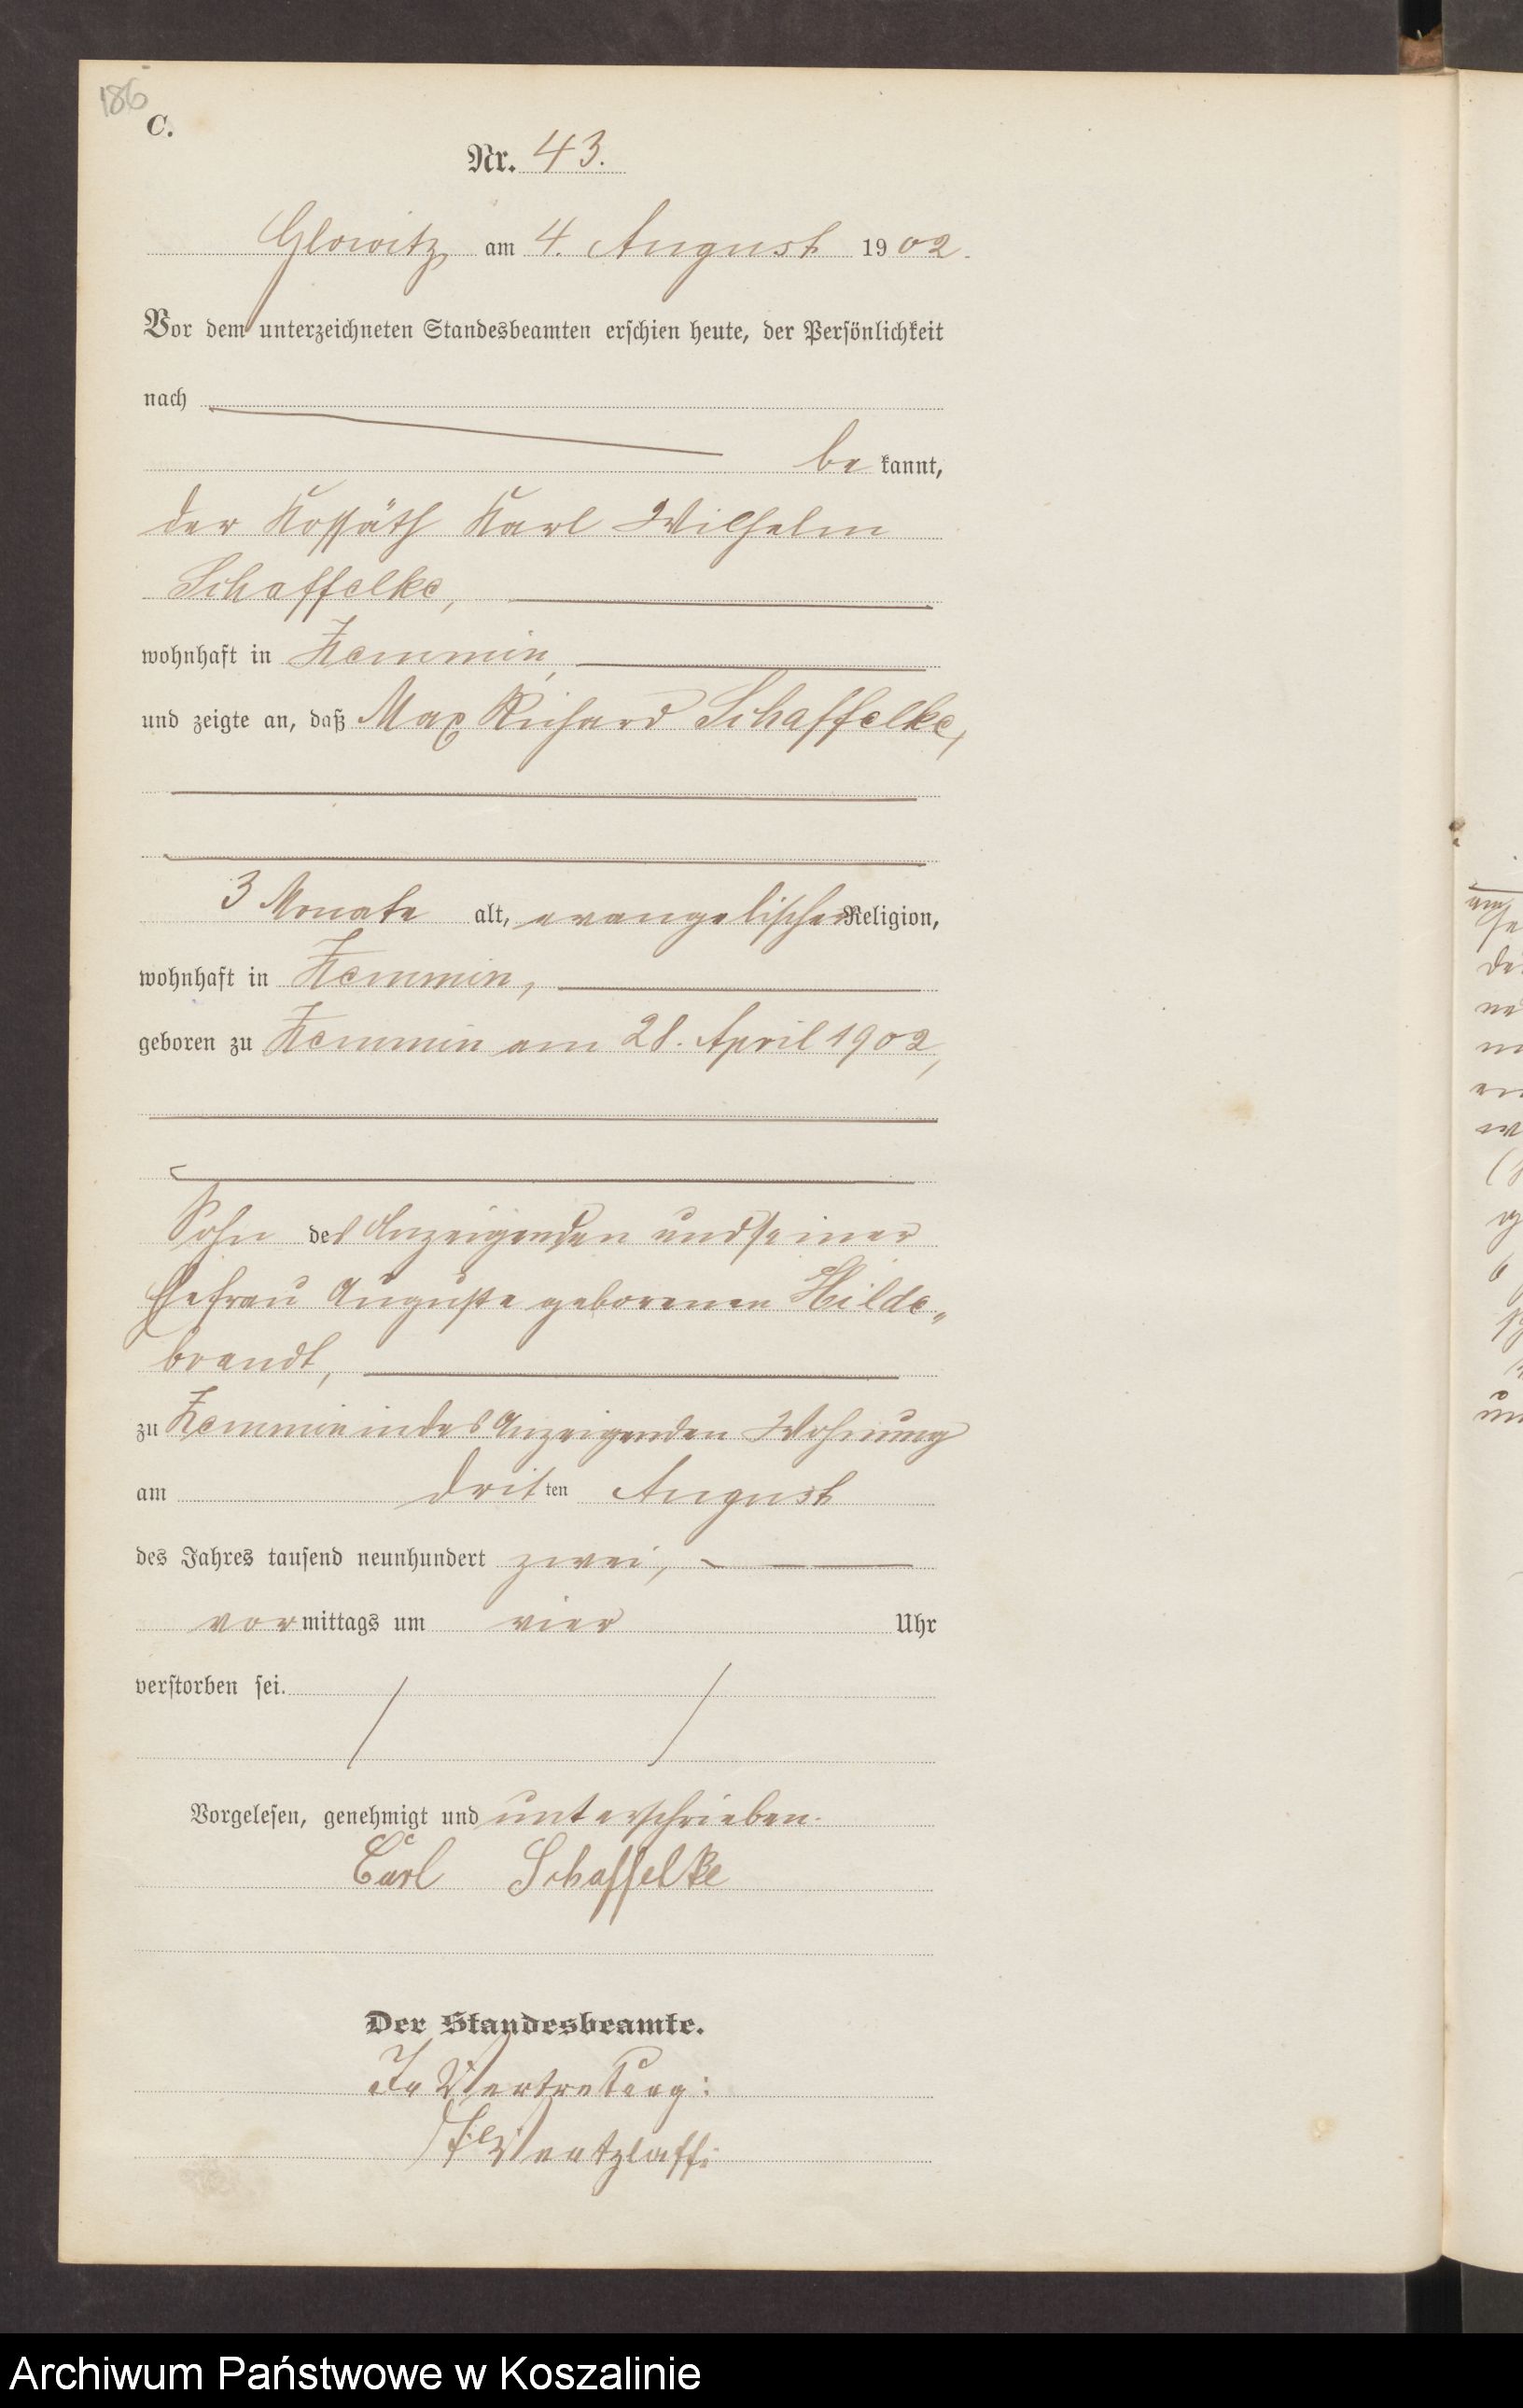 186
C.
Nr. 43.
Glowitz, am 4. August 1902.
Vor dem unterzeichneten Standesbeamten erschien heute, der Persönlichkeit
nach
be kannt,
der Kossäth Karl Wilhelm
Schaffelke,
wohnhaft in Zemmin,
und zeigte an, daß Max Richard Schaffelke,
3 Monate alt, evangelischer Religion,
wohnhaft in Zemmin,
geboren zu Zemmin am 28. April 1902,
Sohn des Anzeigenden und seiner
Ehefrau Auguste geborenen Hilde„
brandt,
zu Zemmin in des Anzeigenden Wohnung
am dritten August
des Jahres tausend neunhundert zwei,
vormittags um vier Uhr
verstorben sei.
Vorgelesen, genehmigt und unterschrieben.
Carl Schaffelke
Der Standesbeamte.
In Vertretung:
Wentzlaff.
Archiwum Państwowe w Koszalinie